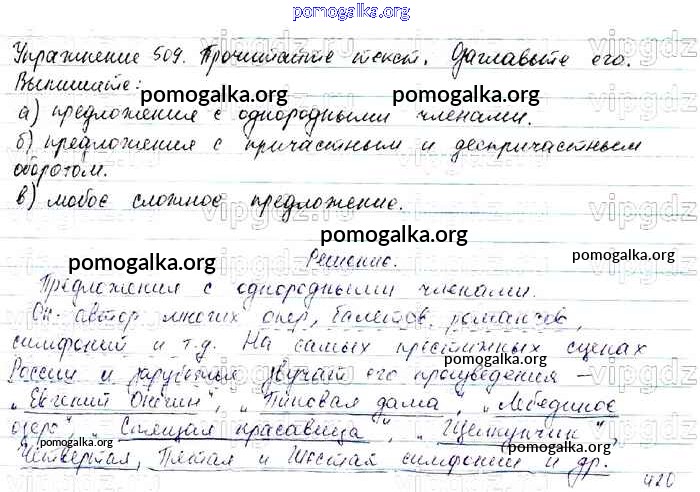 pomogalka.org
Упражнение 509. Прочитайте текст. Озаглавьте его.
Выпишите:
pomogalka.org pomogalka.org
а) предложения с однородными членами.
б) предложения с причастным и деепричастным
оборотом.
в) любое сложное предложение.
vipgdz.ru
pomogalka.org
Решение.
pomogalka.org pomogalka.org
Предложения с однородными членами.
Он автор многих опер, балетов, романсов,
симфоний и т.д. На самых престижных сценах
pomogalka.org
России и зарубежья звучат его произведения –
"Евгений Онегин", "Пиковая дама", "Лебединое
озеро", "Спящая красавица", "Щелкунчик",
pomogalka.org pomogalka.org
Четвертая, Пятая и Шестая симфонии и др.
420